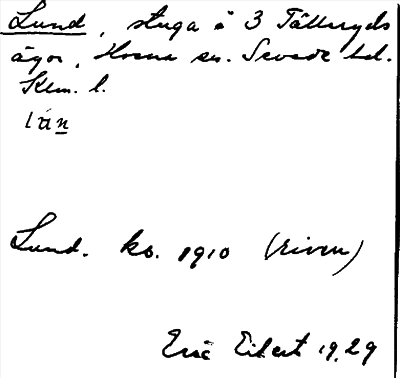 Lund, stuga å 3 Tällеryds
ägor, sn. Sevede hd.
Klm. l.
lun
Lund. ko. 1910 (riven)
Eric Eilert 1929